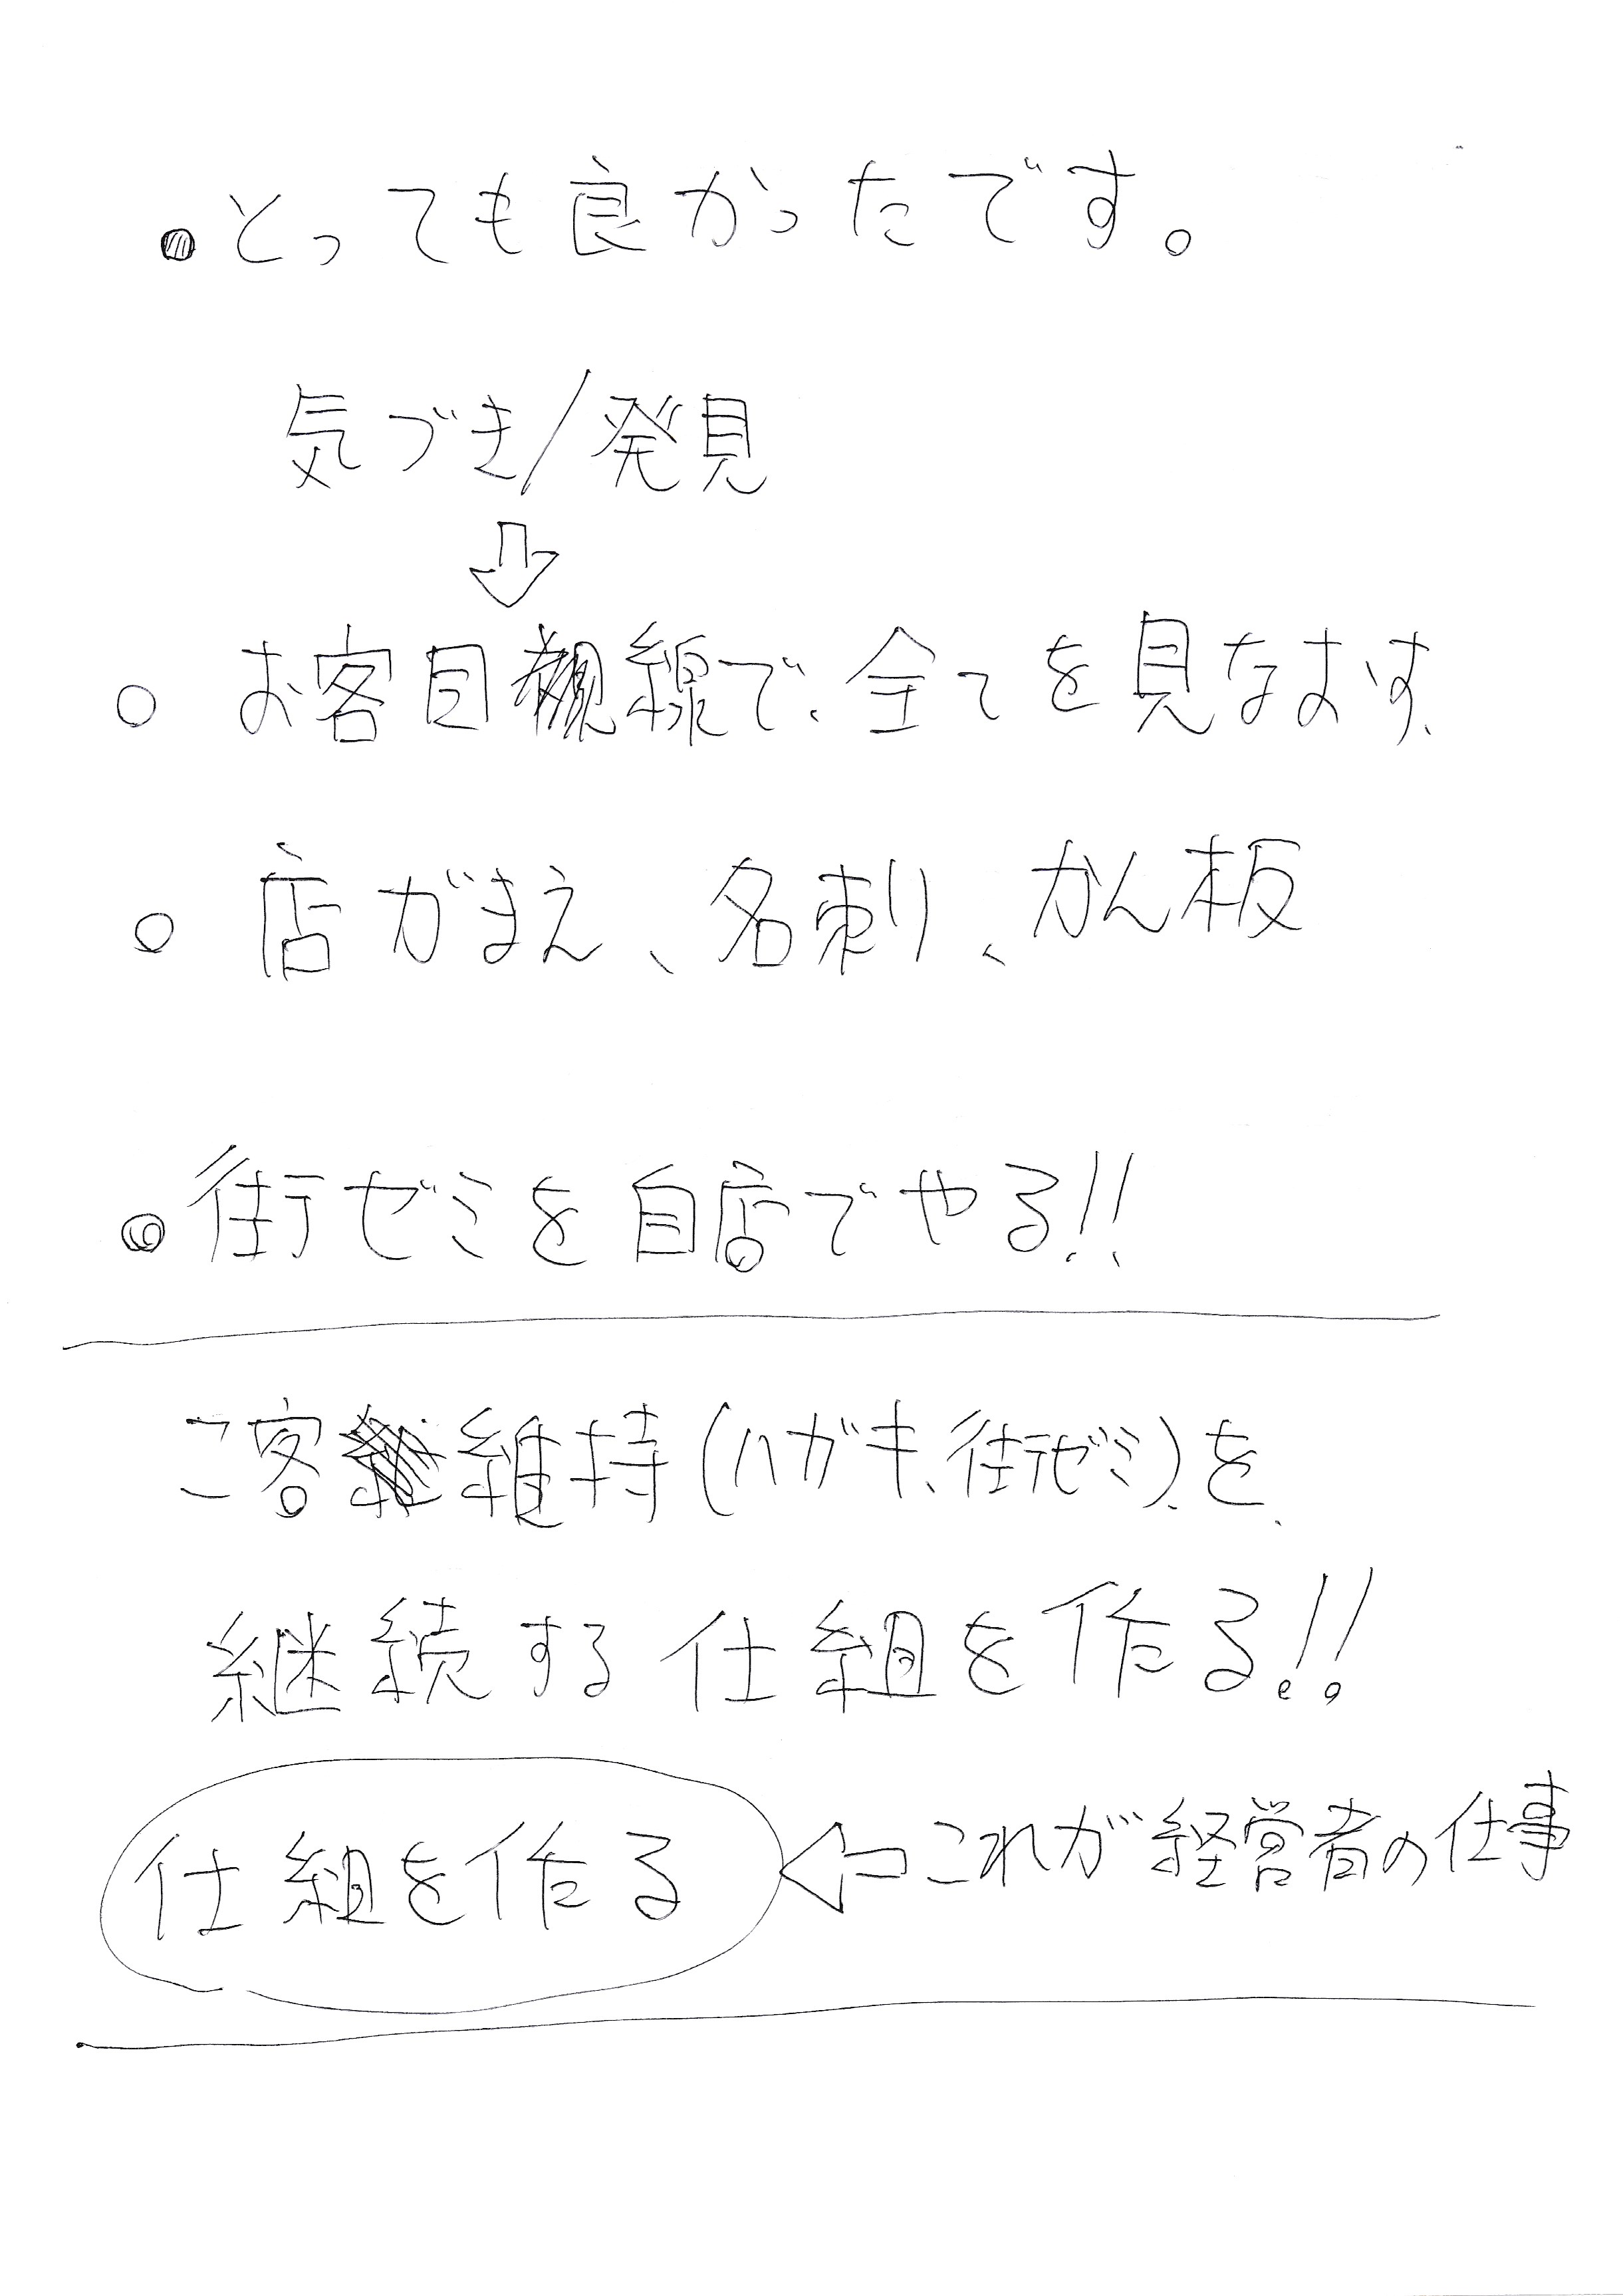 ●とっても良かったです。
気づき/発見
⇩
○ お客目線で、全てを見なおす、
○ 店がまえ、名刺、かん板
◎街ゼミを自店でやる!!
こ客維持(ハガキ、街ゼミ)を、
継続する仕組を作る!!
仕組を作る ⇦これが経営者の仕事